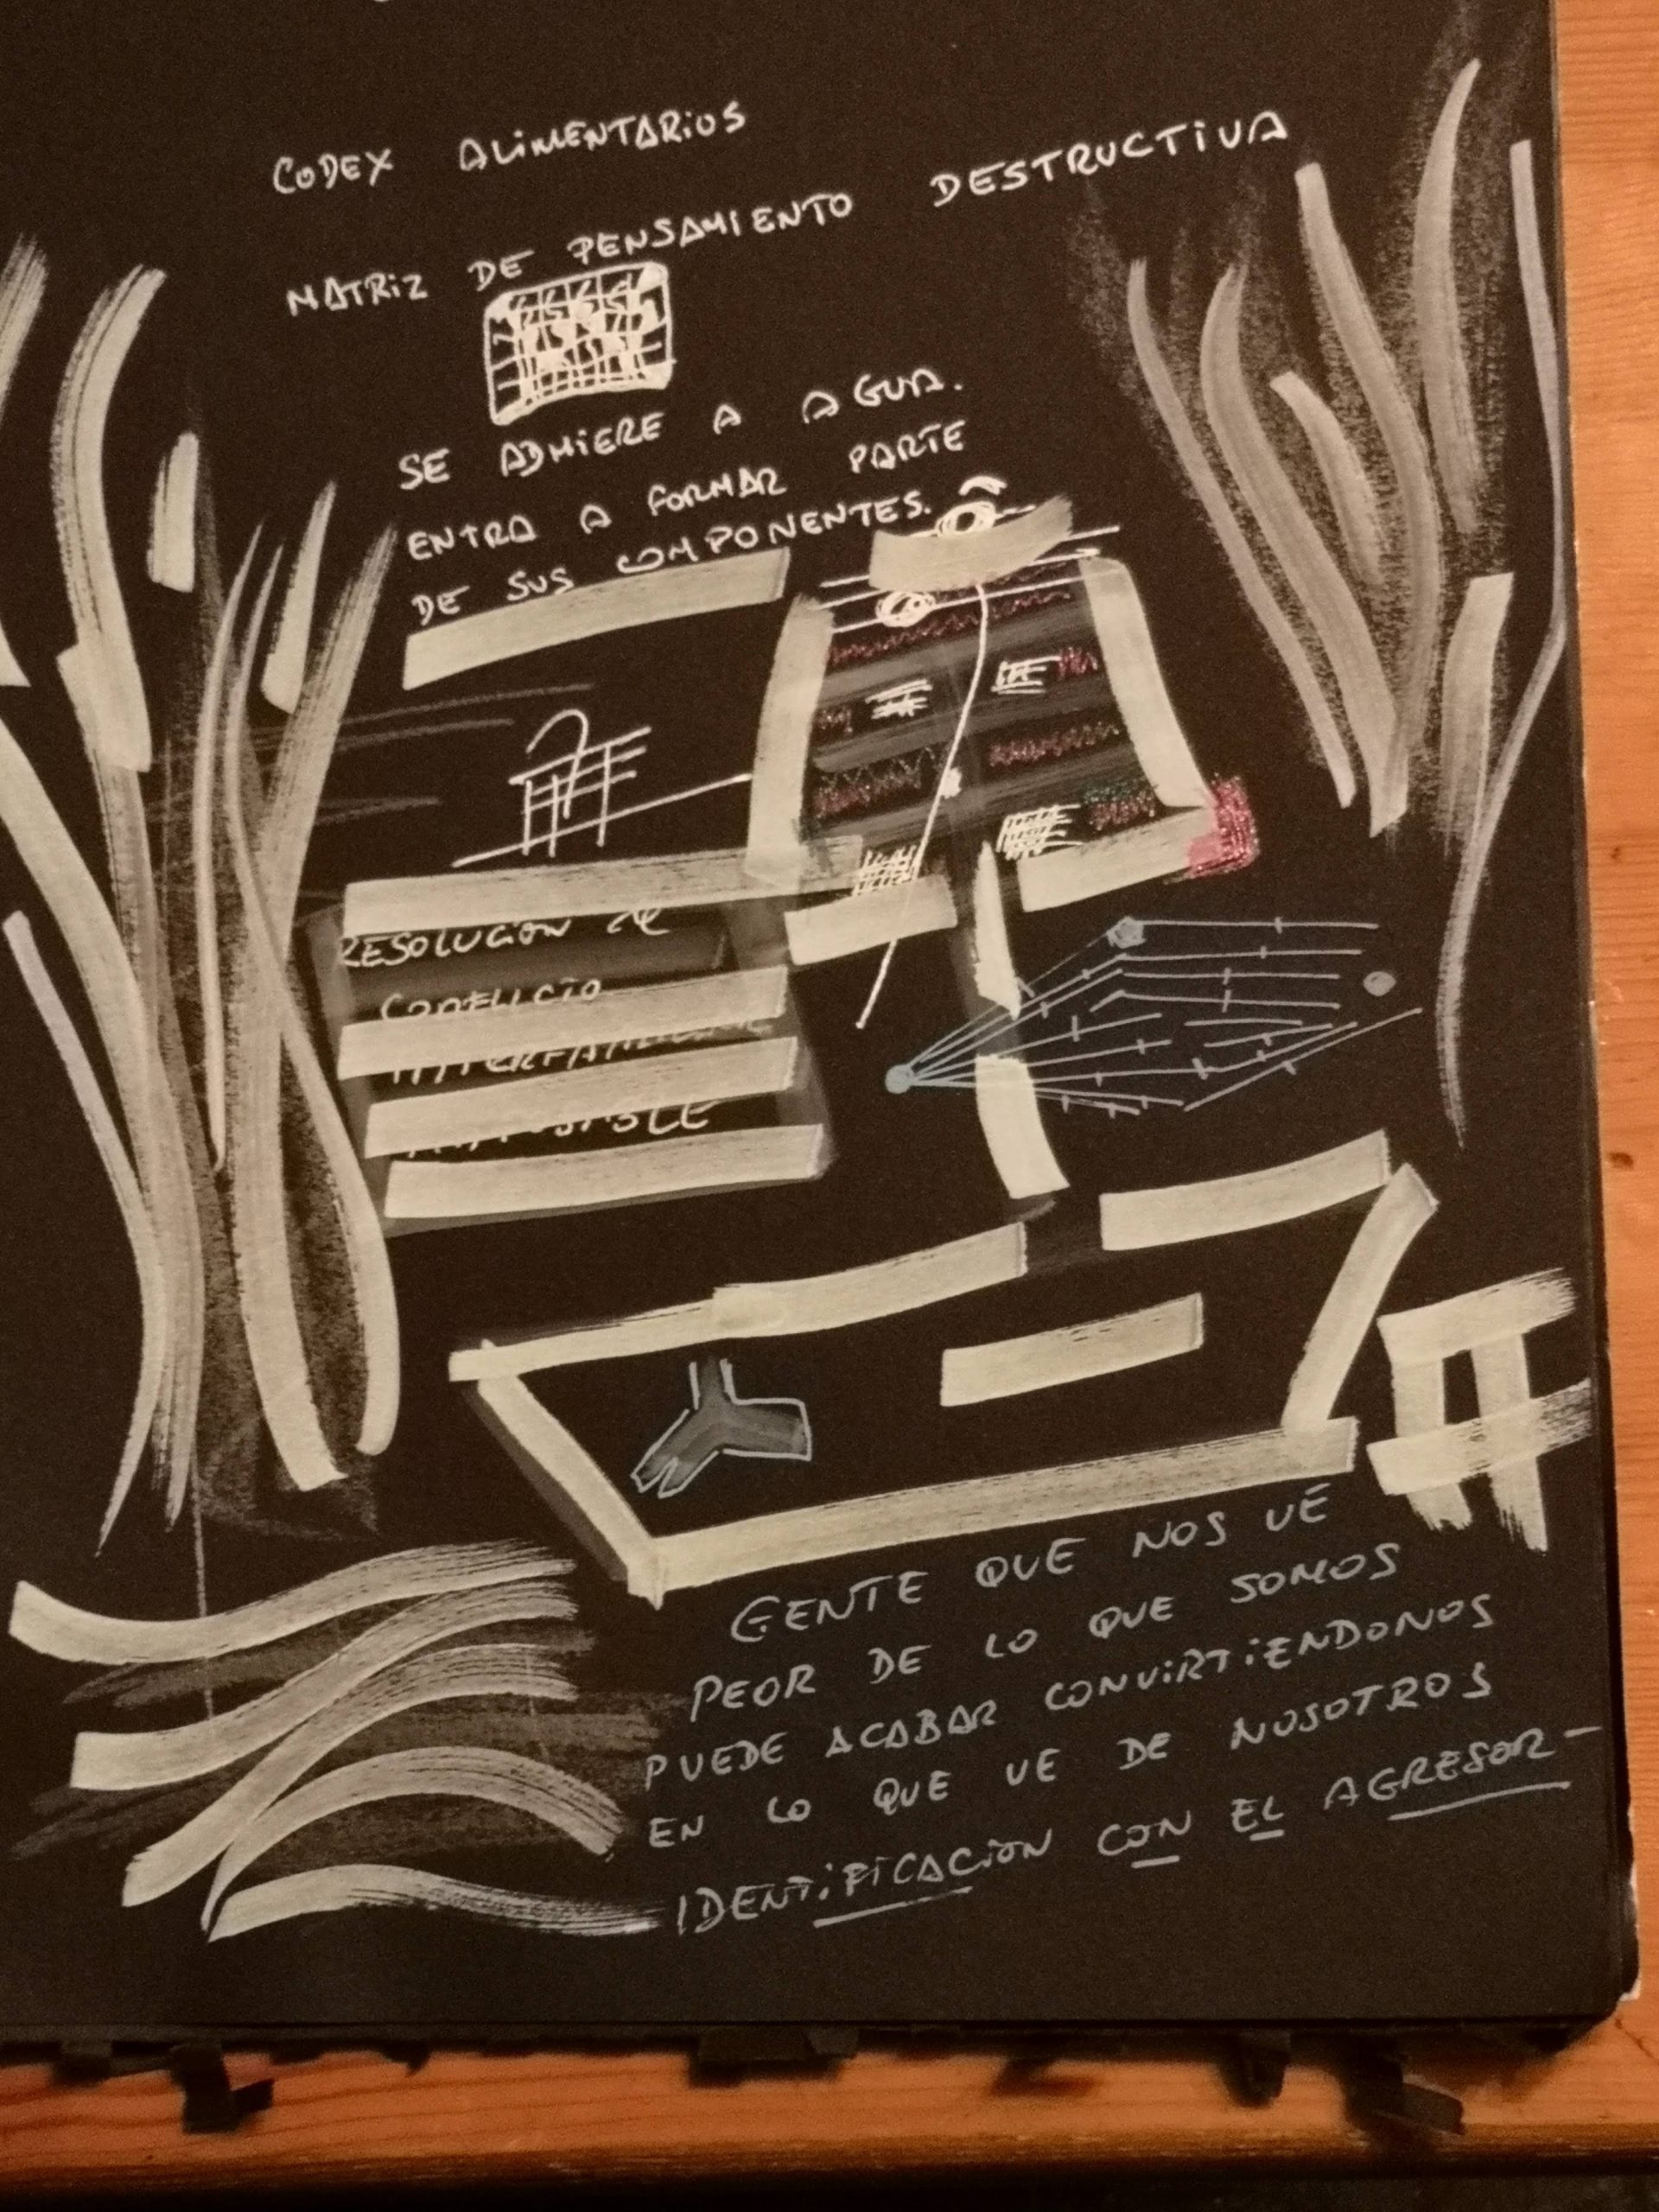 CODEX ALIMENTARIOS
MATRIZ DE PENSAMIENTO DESTRUCTIVA
SE ADHIERE A AGUA.
ENTRA A FORMAR PARTE
DE SUS COMPONENTES.
RESOLUCION DE
CONFLICTO
GENTE QUE NOS VE
PEOR DE LO QUE SOMOS
PUEDE ACABAR CONVIRTIENDONOS
EN LO QUE VE DE NOSOTROS
IDENTIFICACION CON EL AGRESOR-